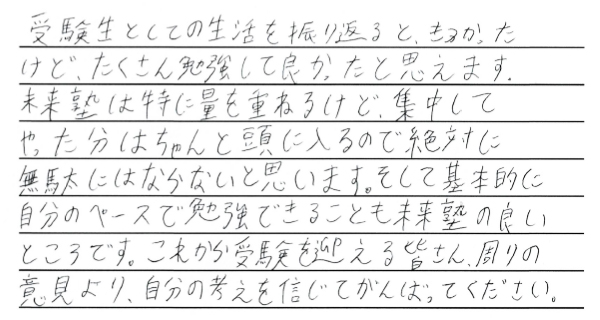 受験生としての生活を振り返ると、きつかった
けど、たくさん勉強して良かったと思えます。
未来塾は特に量を重ねるけど、集中して
やった分はちゃんと頭に入るので絶対に
無駄にはならないと思います。そして基本的に
自分のペースで勉強できることも未来塾の良い
ところです。これから受験を迎える皆さん、周りの
意見より、自分の考えを信じてがんばってください。